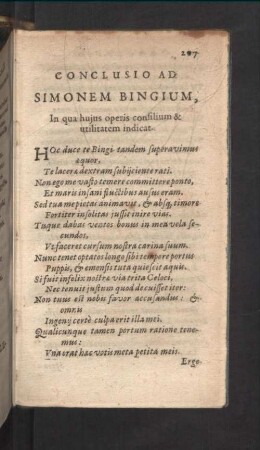 207
CONCLUSIO AD
SIMONEM BINGIUM,
In qua hujus operis consilium &
utilitatem indicat.
HOc duce te Bingi tandem superavimus
equor,
Te lacera dextram subijciente rati.
Non ego me vasto temere committere ponto,
Et maris insani fluctibus ausus eram.
Sed tua me pietas animavit, & absq, timore
Fortiter insolitas jussit inire vias.
Tuque dabas ventos bonus in mea vela se-
cundos,
Ut faceret cursum nostra carina suum.
Nunc tenet optatos longo sibi tempore portus
Puppis, & emensis tuta quiescit aquis.
Si fuit infelix nostræ via trita Celoci,
Nec tenuit justum quod decuisset iter:
Non tuus est nobis favor accusandus: &
omnis
Ingenij certè culpa erit illa mei.
Qualicunque tamen portum ratione tene-
mus:
Vna erat hæc votis meta petita meis.
Ergo